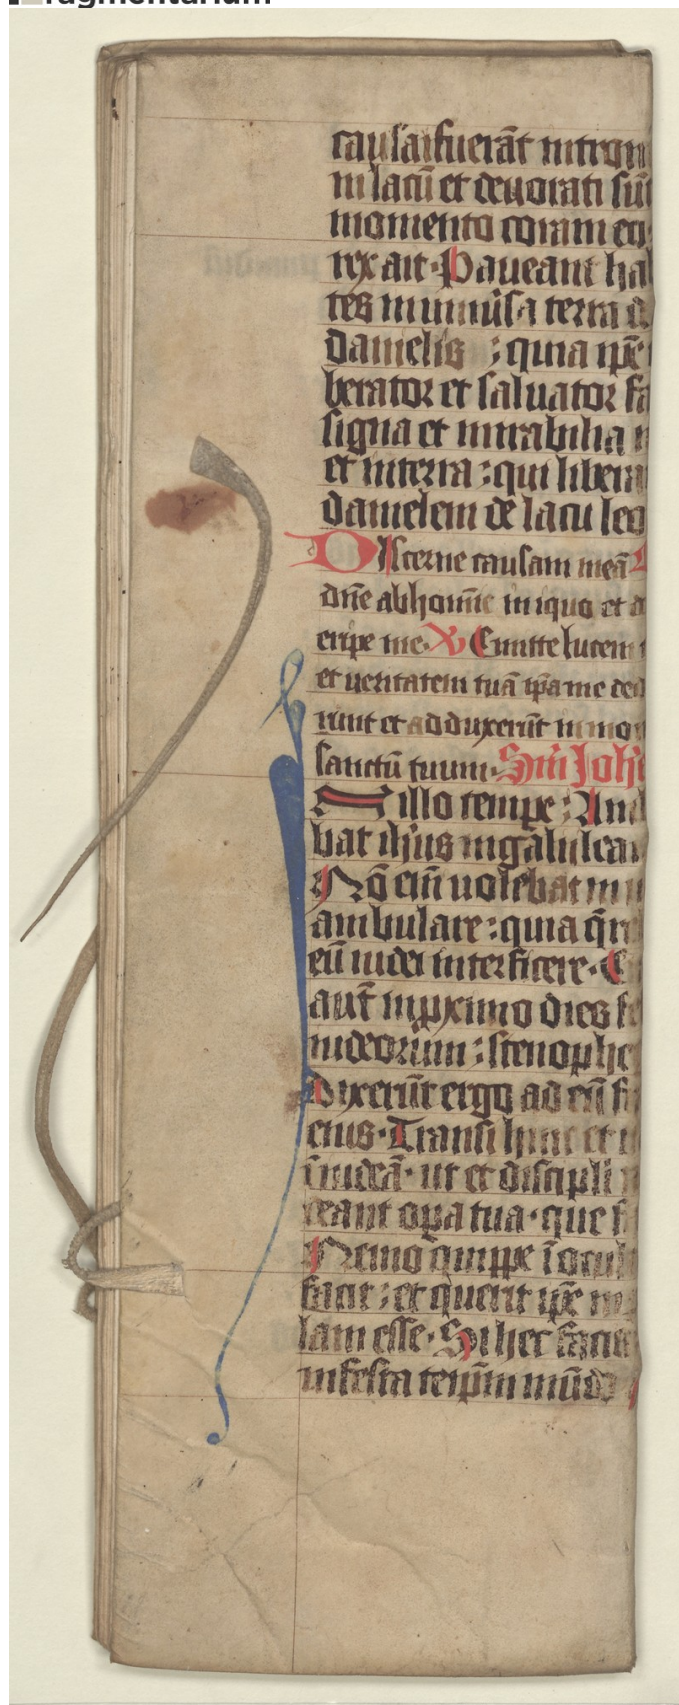 fragmentarium
causa fuerāt intromi
in lacū et deuorati sūt
momento coram eo
rex ait. Paueant ha
tes in uniuūsa terra d
danielis : quia ipē
berator et saluator fa
signa et mirabilia
et in terra : qui libera
danielem de lacu leo
Discerne causam meā
dn̄e ab homīe iniquo et d
eripe me. V Emitte lucem
et ueritatem tuā ip̄a me ded
runt et adduxerūt in mon
sanctū tuum. Sm̄ Joh
In illo tempe : Am
bat ih̄us in galileam
Nō em̄ uolebat in
ambulare : quia q̄re
eū iudei interficere. E
aut̄ in p̱ximo dies fe
iudeorum : scenophe
Dixerūt ergo ad eū fr
eius. Transi hinc et u
ī iudeā. ut et discipli
deant opa tua. que f
Nemo quippe ī ocul
facit : et querit ipē in
lam esse. Si hec facis
infesta teip̄m mūdo